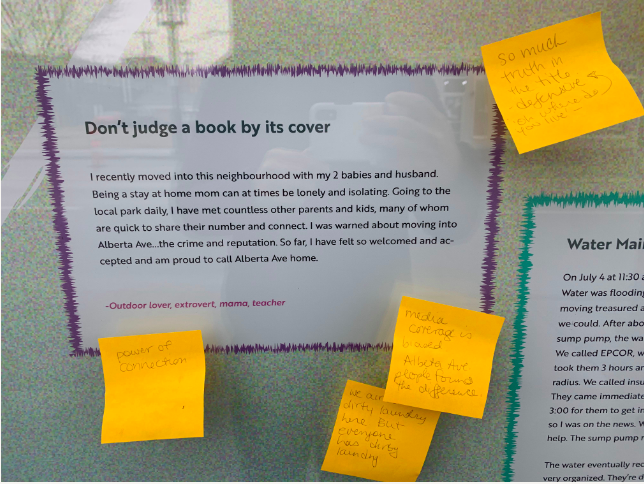 Don't judge a book by its cover
I recently moved into this neighbourhood with my 2 babies and husband.
Being a stay at home mom can at times be lonely and isolating. Going to the
local park daily, I have met countless other parents and kids, many of whom
are quick to share their number and connect. I was warned about moving into
Alberta Ave...the crime and reputation. So far, I have felt so welcomed and ac-
cepted and am proud to call Alberta Ave home.
-Outdoor lover, extrovert, mama, teacher
so much
truth in
the title
defensive
you live
power of
connection
media
coverage is
Alberta Ave
people
the difference
dirty laundry
here but
everyone
has dirty
laundry
Water Mai
On July 4 at 11:30 a
Water was flooding
moving treasured a
we could. After abo
sump pump, the wa
We called EPCOR, w
took them 3 hours an
radius. We called insu
They came immediate
3:00 for them to get in
so I was on the news. W
help. The sump pump r
The water eventually rec
very organized. They're d